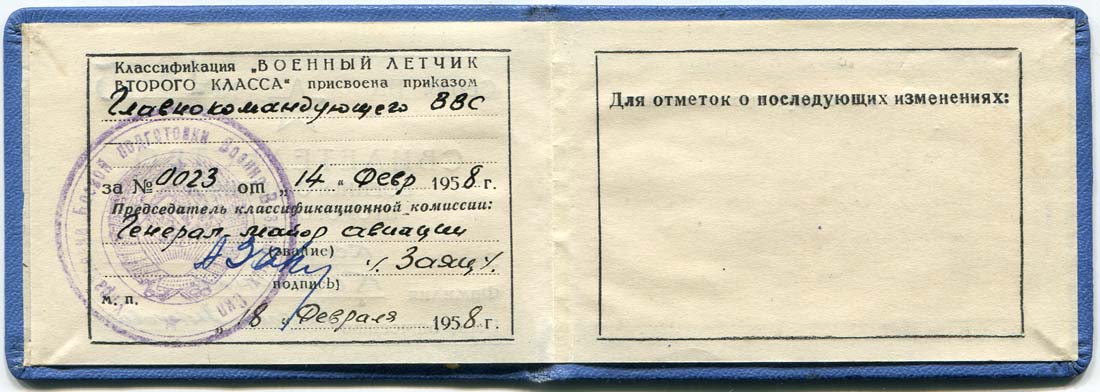 Классификация „ВОЕННЫЙ ЛЕТЧИК
ВТОРОГО КЛАССА“ присвоена приказом
Главнокомандующего ВВС
за № 0023 от „14“ Февр 1958 г.
Председатель классификационной комиссии:
Генерал-майор авиации
(звание)
/. Заяц/.
подпись)
м. п.
„18“ Февраля 1958 г.
Боевой подготовки
Для отметок о последующих изменениях: